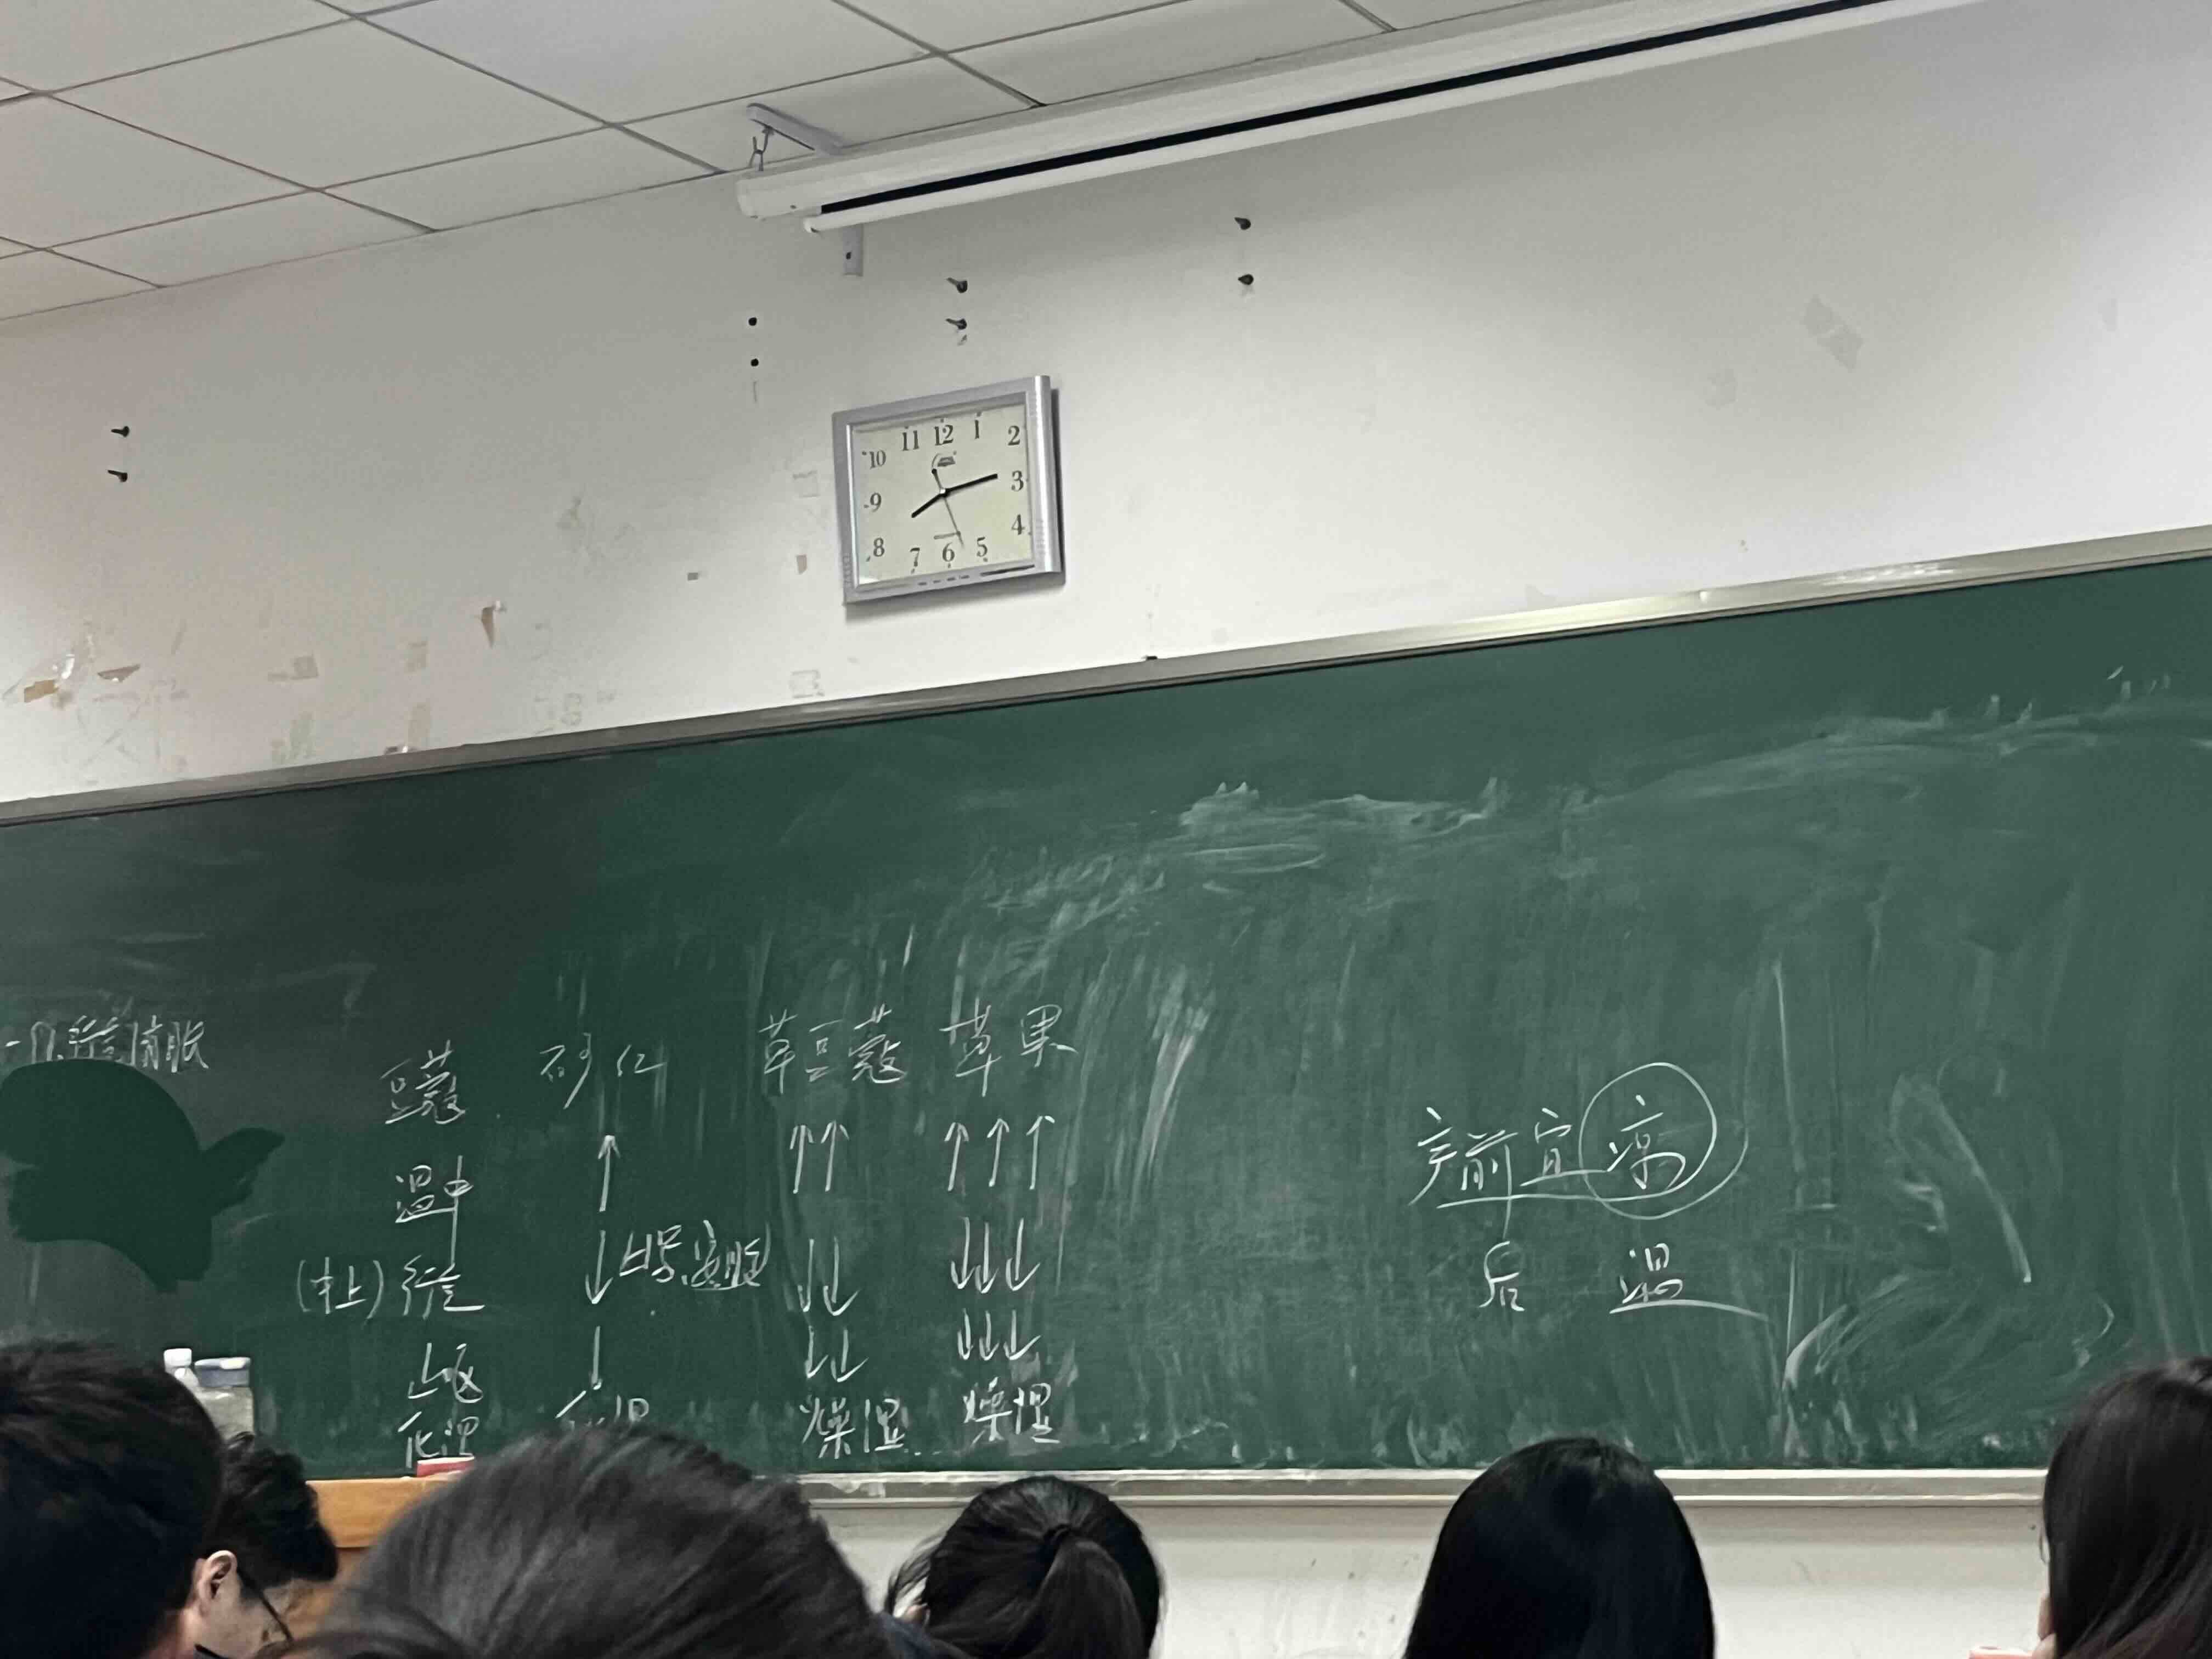 11 12 1
10 2
9 3
8 4
7 6 5
行气消胀
豆蔻 砂仁 草豆蔻 草果
温中 ↑ ↑↑ ↑↑↑
(中上) 行气 ↓ 止呕、安胎 ↓↓ ↓↓↓
止呕 ↓ ↓↓ ↓↓↓
化湿 化湿 燥湿 燥湿
产前宜凉
后 温